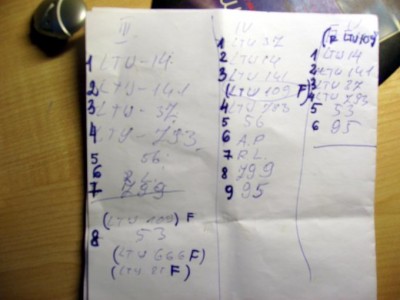 III
1 LTU-14
2 LTU-141
3 LTU-37
4 LTU-793
5 56
6 R.L.
7 799
(LTU 109) F
8 53
(LTU 666 F)
(LTU 81 F)
IV
1 LTU 37
2 LTU 14
3 LTU 141
(LTU 109 F)
4 LTU 793
5 56
6 A.P
7 R.L.
8 799
9 95
V
(R LTU 109)
1 LTU 14
2 LTU 141
3 LTU 37
4 LTU 793
5 53
6 95